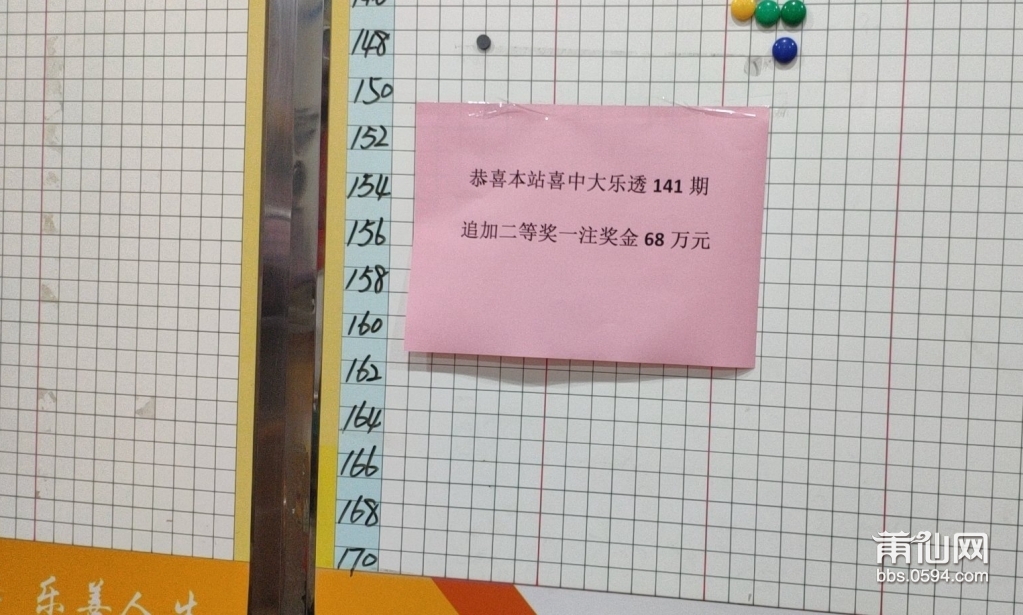 148
150
152
154
156
158
160
162
164
166
168
170
恭喜本站喜中大乐透 141 期
追加二等奖一注奖金 68 万元
乐善人生
莆仙网
bbs.0594.com